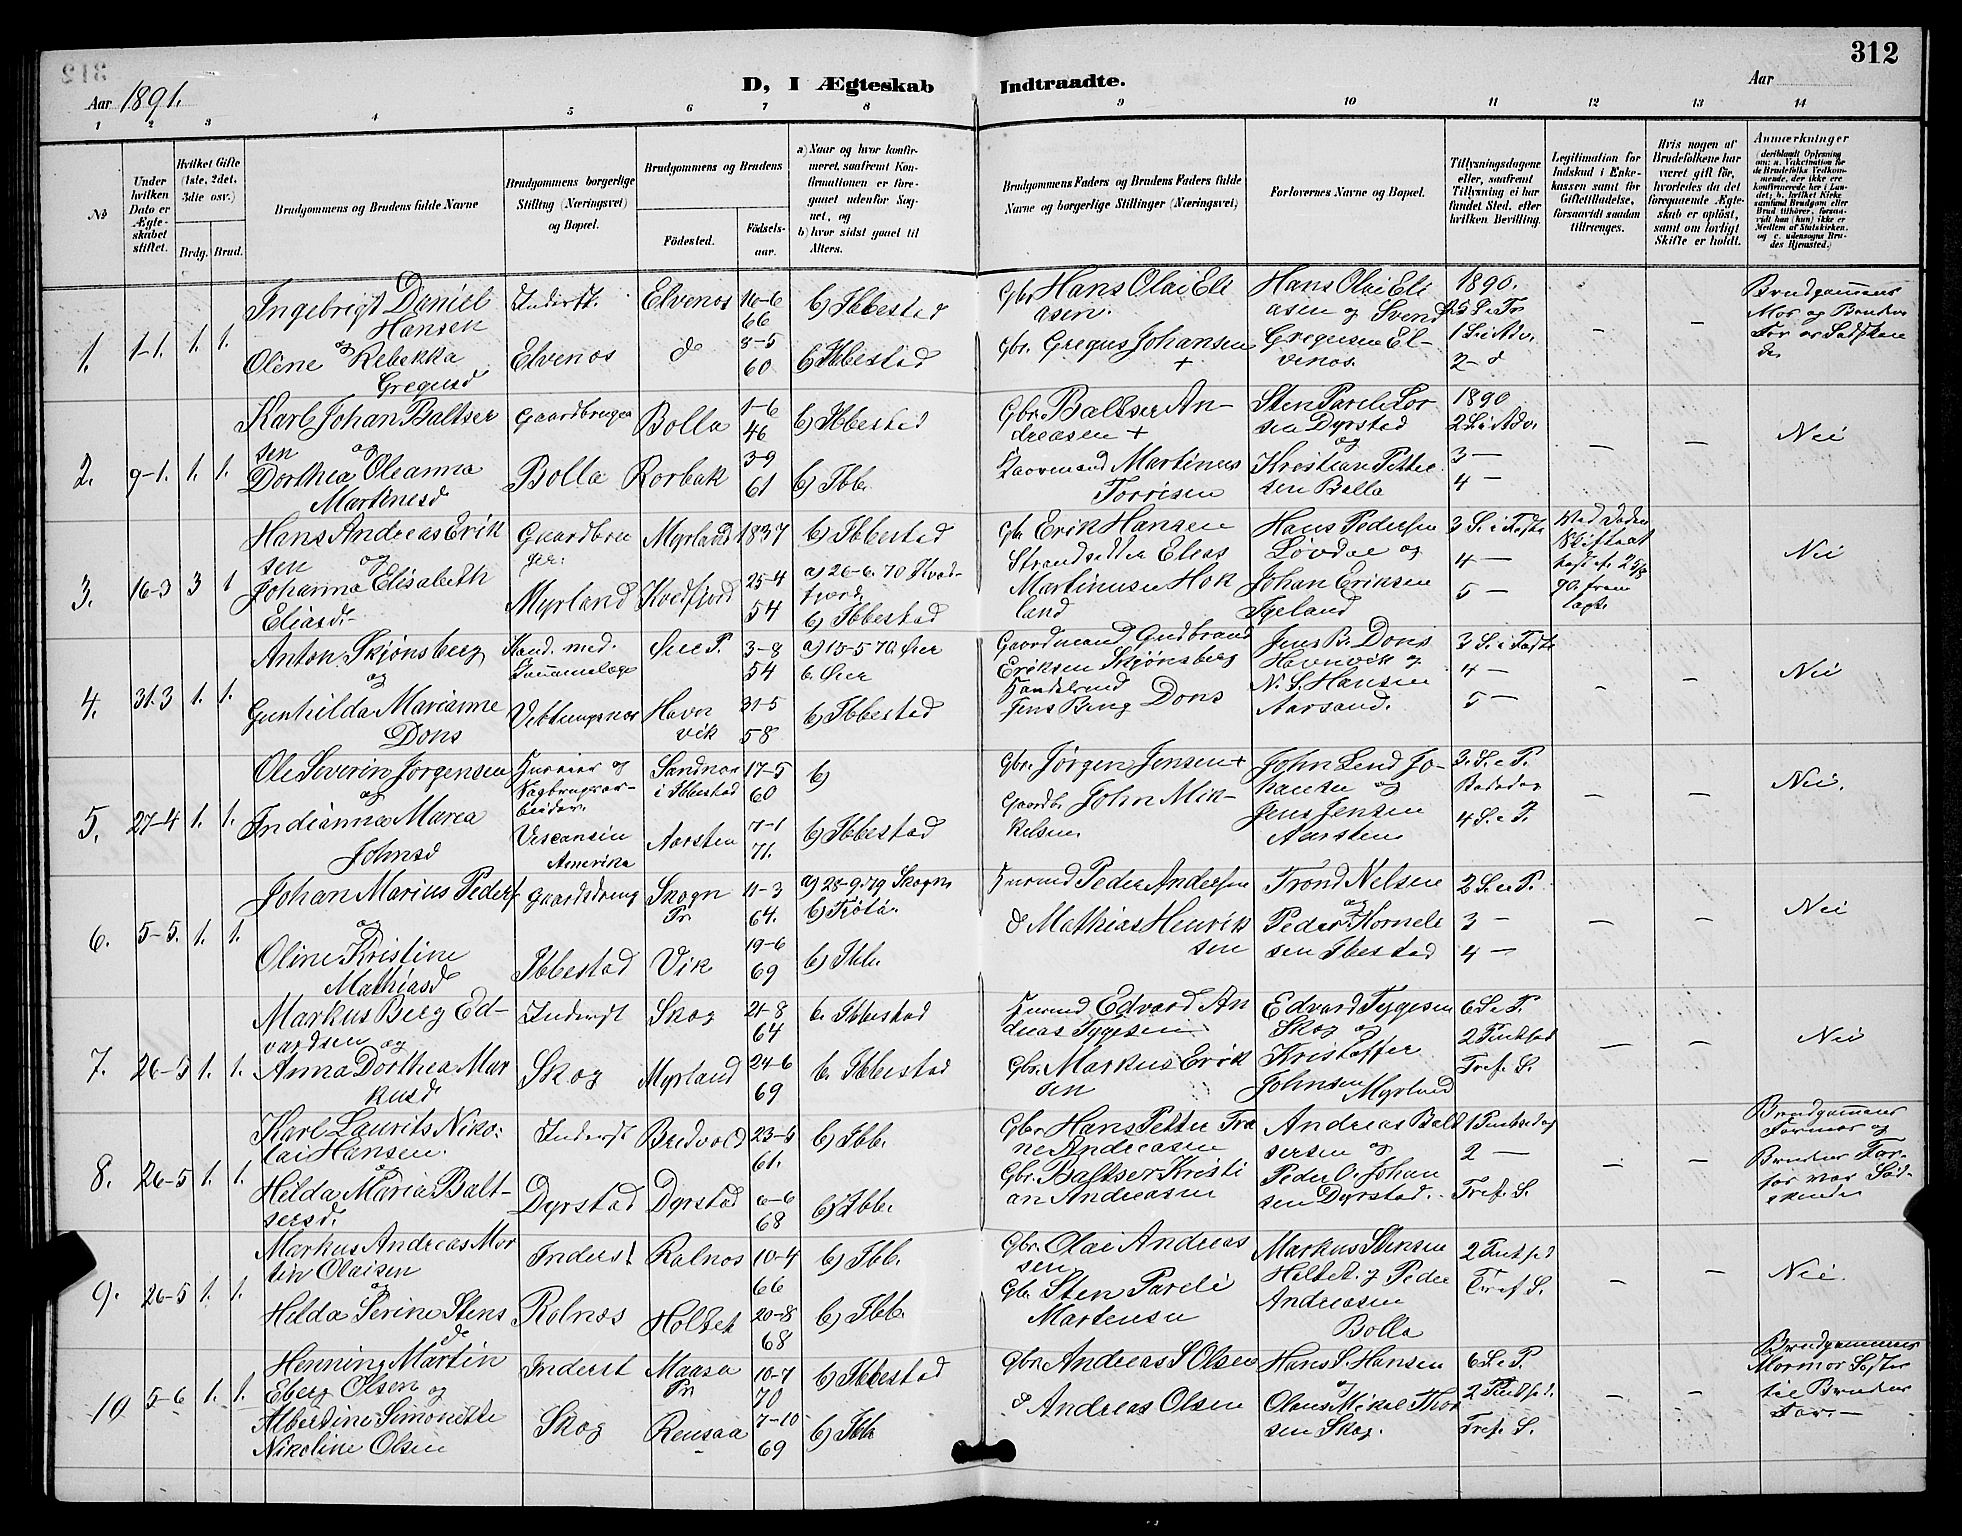 312
Aar 1891.
D, I Ægteskab Indtraadte.
Aar
1 2 3 4 5 6 7 8 9 10 11 12 13 14
No
Under hvilken Dato er Ægteskabet stiftet.
Hvilket Gifte (1ste, 2det, 3die osv.)
Brdg. Brud.
Brudgommens og Brudens fulde Navne
Brudgommens borgerlige Stilling (Næringsvei) og Bopæl.
Brudgommens og Brudens
Fødested. Fødselsaar.
a) Naar og hvor konfirmeret, saafremt Konfirmationen er foregaaet udenfor Sognet, og
b) hvor sidst gaaet til Alters.
Brudgommens Faders og Brudens Faders fulde Navne og borgerlige Stillinger (Næringsvei)
Forlovernes Navne og Bopæl.
Tillysningsdagene eller, saafremt Tillysning ei har fundet Sted, efter hvilken Bevilling.
Legitimation for Indskud i Enkekassen samt for Giftetilladelse, forsaavidt saadan tiltrænges.
Hvis nogen af Brudefolkene har været gift før, hvorledes da det foregaaende Ægteskab er opløst, samt om lovligt Skifte er holdt.
Anmærkninger (deriblandt Oplysning om: a. Vakcination for de Brudefolks Vedkommende, der ikke ere konfirmerede her i Landet; b. hvilket Kirkesamfund Brudgom eller Brud tilhører, forsaavidt han (hun) ikke er Medlem af Statskirken, og c. udensogns Brudes Hjemsted.)
1. 1-1. 1. 1.
Ingebrigt Daniel
Hansen
og
Oline Rebekka
Gregusd
Inderst.
Elvenos
Elvenos 16-6
66
do 8-5
60
b) Ibbestad
b) Ibbestad
Gbr. Hans Olai Eli
asen.
Gbr. Gregus Johansen
+
Hans Olai Eli
asen og Svend
Gregusen El-
venos.
1890.
25 S. e Tr
1 S. i Adv.
2 - d
— —
Brudgommens
Mor og Brudens
Far er Sødsken
de.
2. 9-1. 1. 1.
Karl Johan Baltser
sen og
Dorthea Oleanna
Martinesd
Gaardbruger
Bolla
Bolla 1-6
46
Rorbak 3-9
61
b) Ibbestad
b) Ibb.
Gbr. Baltser An-
dreasen +
Gaardmand Martinus
Torrisen
Sten Pareli Lor
sen Dyrstad
og
Kristian Petter
sen Bolla
1890
2 S. i Adv.
3 —
4 —
— —
Nei
3. 16-3 3 1
Hans Andreas Erik
sen og
Johanna Elisabeth
Eliasd.
Gaardbru
ger.
Myrland
Myrland 1837
Kvedfjord 25-4
54
b) Ibbestad
a) 26-6. 70 Kved-
fjord.
b) Ibbestad
Gbr Erik Hansen
Strandsidder Elias
Martinusen Hok
land
Hans Pedersen
Løvdal og
Johan Eriksen
Tyeland
3 S. i Faste
4 —
5 —
Ved Døden
Skifteat
test af 25/8
90 frem
lagt.
Nei
4. 31.3 1. 1.
Anton Skjønsberg
og
Gunhilda Marianne
Dons
Kand. med.
Kommunelæge
Vebtungsnes
Øier P. 3-8
54
Havn
vik 31-5
58
a) 15-5 70. Øier
b. Øier
b) Ibbestad
Gaardmand Gudbrand
Eriksen Skjønsberg
Handelsmd
Jens Bing Dons
Jens B. Dons
Havnvik og
N. S. Hansen
Aarsand.
3 S. i Faste
4 —
5 —
— —
Nei
5. 27-4 1. 1.
Ole Severin Jørgensen
og
Indianna Marea
Johnsd
Huseier og
Sagbrugsar-
beider.
Visconsin
Amerika
Sandnes
i Ibbestad 17-5
60
Aarsten 7-1
71.
b)
b) Ibbestad
Gbr. Jørgen Jensen +
Gaardb. John Mik-
kelsen.
John Lend Jo-
hansen og
Jens Jensen
Aarsten
3. S. e P.
Bededag
4 S. e P.
— —
Nei.
6. 5-5. 1. 1.
Johan Marius Peders
og
Oline Kristine
Mathiasd
Gaardsdreng
Ibbestad
Skogn
Pr 11-3
64.
Vik 19-6
69
a) 28-9.79 Skogn
b) Tjøtta.
b) Ibb.
Husmd Peder Andersen
d Mathias Henrik
sen
Trond Nelsen
og
Peder Korneli
sen Ibestad
2 S. e P.
3 —
4 —
— —
Nei
7. 26-5 1. 1.
Markus Berg Ed-
vardsen og
Anna Dorthea Mar
kusd
Inderst
Skog
Skog 21-8
64
Myrland 24-6
69
b. Ibbestad
b. Ibbestad
Husmd Edvard An
dreas Tygesen
Gbr. Markus Erik
sen
Edvard Tygesen
Skog og
Kristoffer
Johnsen Myrland
6 S. e P.
2 Pintsed
Tref. S.
— —
Nei
8. 26-5 1. 1.
Karl Laurits Niko-
lai Hansen.
og
Hilda Maria Balt-
sersd.
Inderst
Dyrstad
Bredvold 23-6
61.
Dyrstad 6-6
68
b) Ibb.
b) Ibb.
Gbr Hans Petter Tra
ne Andreasen
Gbr. Baltser Kristi
an Andreasen
Andreas Balt
sersen og
Peder O. Johan
sen Dyrstad.
1 Pintsedag
2 —
Tref. S.
— —
Brudgommens
Farmor og
Brudens Far-
far var Sød-
skende
9. 26-5 1. 1.
Markus Andreas Mor
tin Olaisen
og
Helda Serine Stens
d
Inderst
Rolnos
Ralnos 10-4
66
Holtet 20-8
68
b) Ibb.
b) Ibb.
Gbr. Olai Andreas
sen.
Gb. Sten Pareli
Martensen
Markus Stensen
Holtet. og Peder
Andreasen
Bolla
2 Pintsd
Tref S.
— —
Nei.
10 5-6 1. 1.
Henning Martin
Eberg Olsen og
Albertine Simonette
Nikoline Olsen
Inderst
Skog
Maasø
Pr 10-7
70
Rensaa 7-10
69
b) Ibbestad
b) Ibb
Gbr Andreas S Olsen
d Andreas Olsen
Hans S. Hansen
og
Olaus Mikal Thor
sen Skog.
6 S. e P.
2 Pintsd.
Tref. S.
— —
Brudgommens
Mormor Søster
til Brudens
Far. —